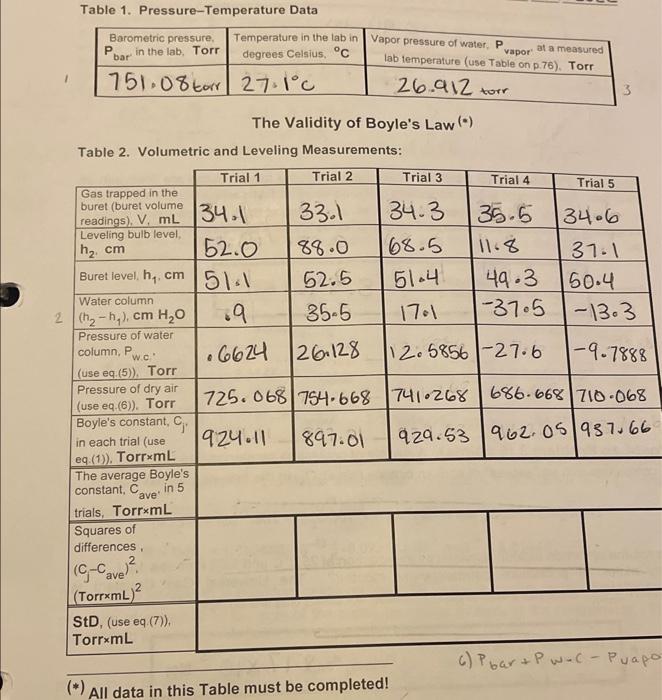 Table 1. Pressure–Temperature Data
Barometric pressure, P bar in the lab, Torr
Temperature in the lab in degrees Celsius, °C
Vapor pressure of water, P vapor, at a measured lab temperature (use Table on p.76), Torr
1 751.08 torr 27.1°C 26.912 torr 3
The Validity of Boyle's Law (*)
Table 2. Volumetric and Leveling Measurements:
Trial 1 Trial 2 Trial 3 Trial 4 Trial 5
Gas trapped in the
buret (buret volume
readings), V, mL 34.1 33.1 34.3 35.5 34.6
Leveling bulb level,
h2, cm 52.0 88.0 68.5 11.8 37.1
Buret level, h1, cm 51.1 52.5 51.4 49.3 50.4
Water column
2 (h2 – h1), cm H2O .9 35.5 17.1 -37.5 -13.3
Pressure of water
column, Pw.c.,
(use eq.(5)), Torr .6624 26.128 12.5856 -27.6 -9.7888
Pressure of dry air
(use eq.(6)), Torr 725.068 754.668 741.268 686.668 710.068
Boyle's constant, Cj,
in each trial (use
eq.(1)), Torr×mL 924.11 897.01 929.53 962.05 937.66
The average Boyle's
constant, Cave, in 5
trials, Torr×mL
Squares of
differences,
(Cj–Cave)²,
(Torr×mL)²
StD, (use eq.(7)),
Torr×mL
6) Pbar + Pw-c - Pvapo
(*) All data in this Table must be completed!